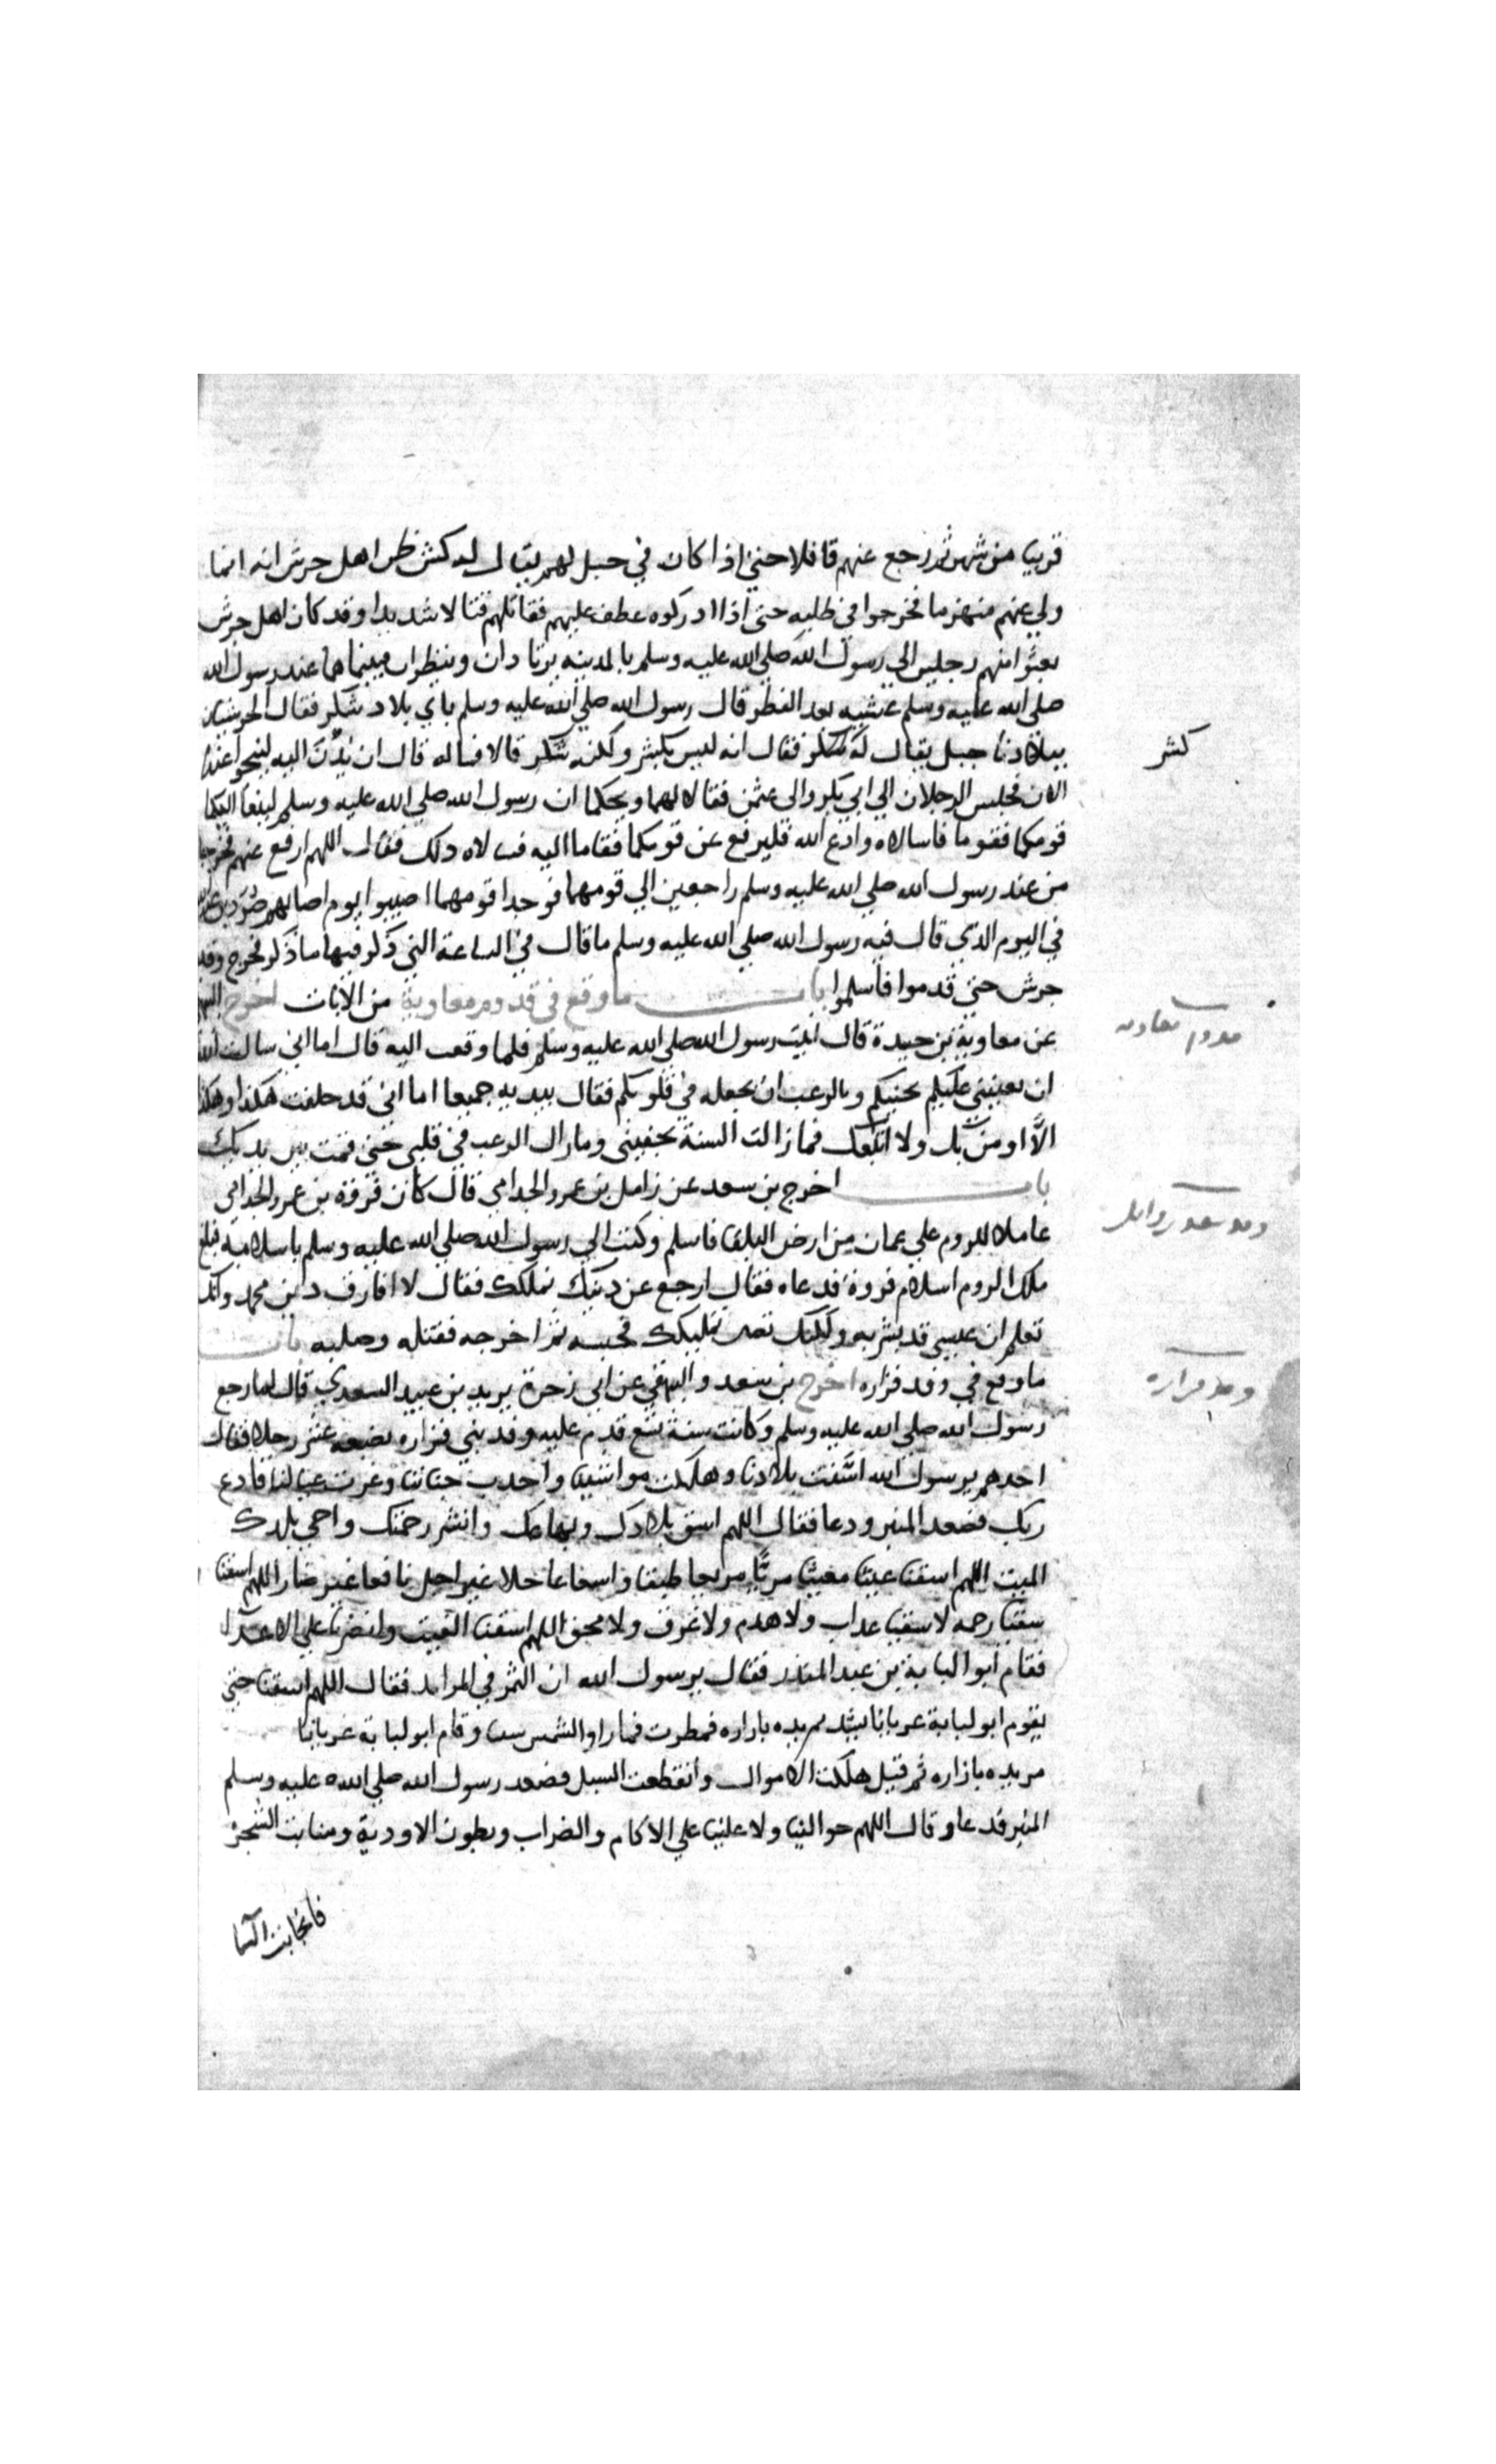 قريبا من شهر ثم رجع عنهم قافلا حتى اذا كان في جبل لهم يقال له كشر ظن اهل جرش انه انما
ولي عنهم منهزما فخرجوا في طلبه حتى اذا ادركوه عطف عليهم فقاتلهم قتالا شديدا وقد كان اهل جرش
بعثوا منهم رجلين الي رسول الله صلي الله عليه وسلم بالمدينه يرتادان وينظران فبينما هما عند رسول الله
صلي الله عليه وسلم عشيه بعد الفطر قال رسول الله صلي الله عليه وسلم باي بلاد شكر فقال الجرشيان
ببلادنا جبل يقال له فقال انه ليس بكشر ولكنه شكر قالا فماله قال ان بدن اليه لينحر عنده
كشر
الان فجلس الرجلان الي ابي بكر والى عثمن فقالا لهما ويحكما ان رسول الله صلي الله عليه وسلم لينعا اليكما
قومكما فقوما فاسالاه وادع الله فليرفع عن قومكما فقاما اليه فسالاه ذلك فقال اللهم ارفع عنهم فخرجا
من عند رسول الله صلي الله عليه وسلم راجعين الي قومهما فوجدا قومهما اصيبوا يوم اصابهم صرد بن
في اليوم الذي قال فيه رسول الله صلي الله عليه وسلم ما قال في الساعة التي ذكر فيها ما ذكر فخرج وفد
جرش حتى قدموا فاسلموا باب ما وقع في قدوم معاوية من الايات اخرج
قدوم معاويه
عن معاوية بن حيدة قال اتيت رسول الله صلي الله عليه وسلم فلما وقعت اليه قال اما اني سالت الله
ان يعينني عليكم وبالرعب ان يجعله في قلوبكم فقال بيديه جميعا اما اني قد حلفت هكذا وهكذا
الا اومن بك ولا اتبعك فما زالت السنة تحفيني وما زال الرعب في قلبي حتى قمت بين يديك
باب اخرج بن سعد عن زامل بن عمرو الجذامي قال كان فروة بن عمرو الجذامي
عاملا للروم علي عمان من ارض البلقا فاسلم وكتب الي رسول الله صلي الله عليه وسلم باسلامه فبلغ
ملك الروم اسلام فروة فدعاه فقال ارجع عن دينك نملكك فقال لا افارق دين محمد وانك
تعلم ان عيسي قد بشر به ولكنك تضن بملكك فحبسه ثم اخرجه فقتله وصلبه باب
ما وقع في وفد فزاره اخرج بن سعد والبيهقي عن ابي وجزة يزيد بن عبيد السعدي قال لما رجع
وفد فزاره
رسول الله صلي الله عليه وسلم وكانت سنة تسع قدم عليه وفد بني فزاره بضعه عشر رجلا فقال
احدهم يرسول الله اسنتت بلادنا وهلكت مواشينا واجدب جنابنا وغرث عيالنا فادع
ربك فصعد المنبر ودعا فقال اللهم اسق بلادك وبهائمك وانشر رحمتك واحي بلدك
الميت اللهم اسقنا غيثا مغيثا مريا مريعا طبقا واسعا عاجلا غير اجل نافعا غير ضار اللهم اسقنا
سقيا رحمه لا سقيا عذاب ولا هدم ولا غرق ولا محق اللهم اسقنا الغيث وانصرنا علي الاعدا
فقام ابو لبابة بن عبد المنذر فقال يرسول الله ان التمر في المرابد فقال اللهم اسقنا حتى
يقوم ابو لبابة عريانا يشد مربده بازاره فمطرت فما راوا الشمس سبتا وقام ابو لبابة عريانا
مربده بازاره ثم قيل هلكت الاموال وانقطعت السبل فصعد رسول الله صلي الله عليه وسلم
المنبر فدعا وقال اللهم حوالينا ولا علينا علي الاكام والضراب وبطون الاودية ومنابت الشجر
فانجابت السما